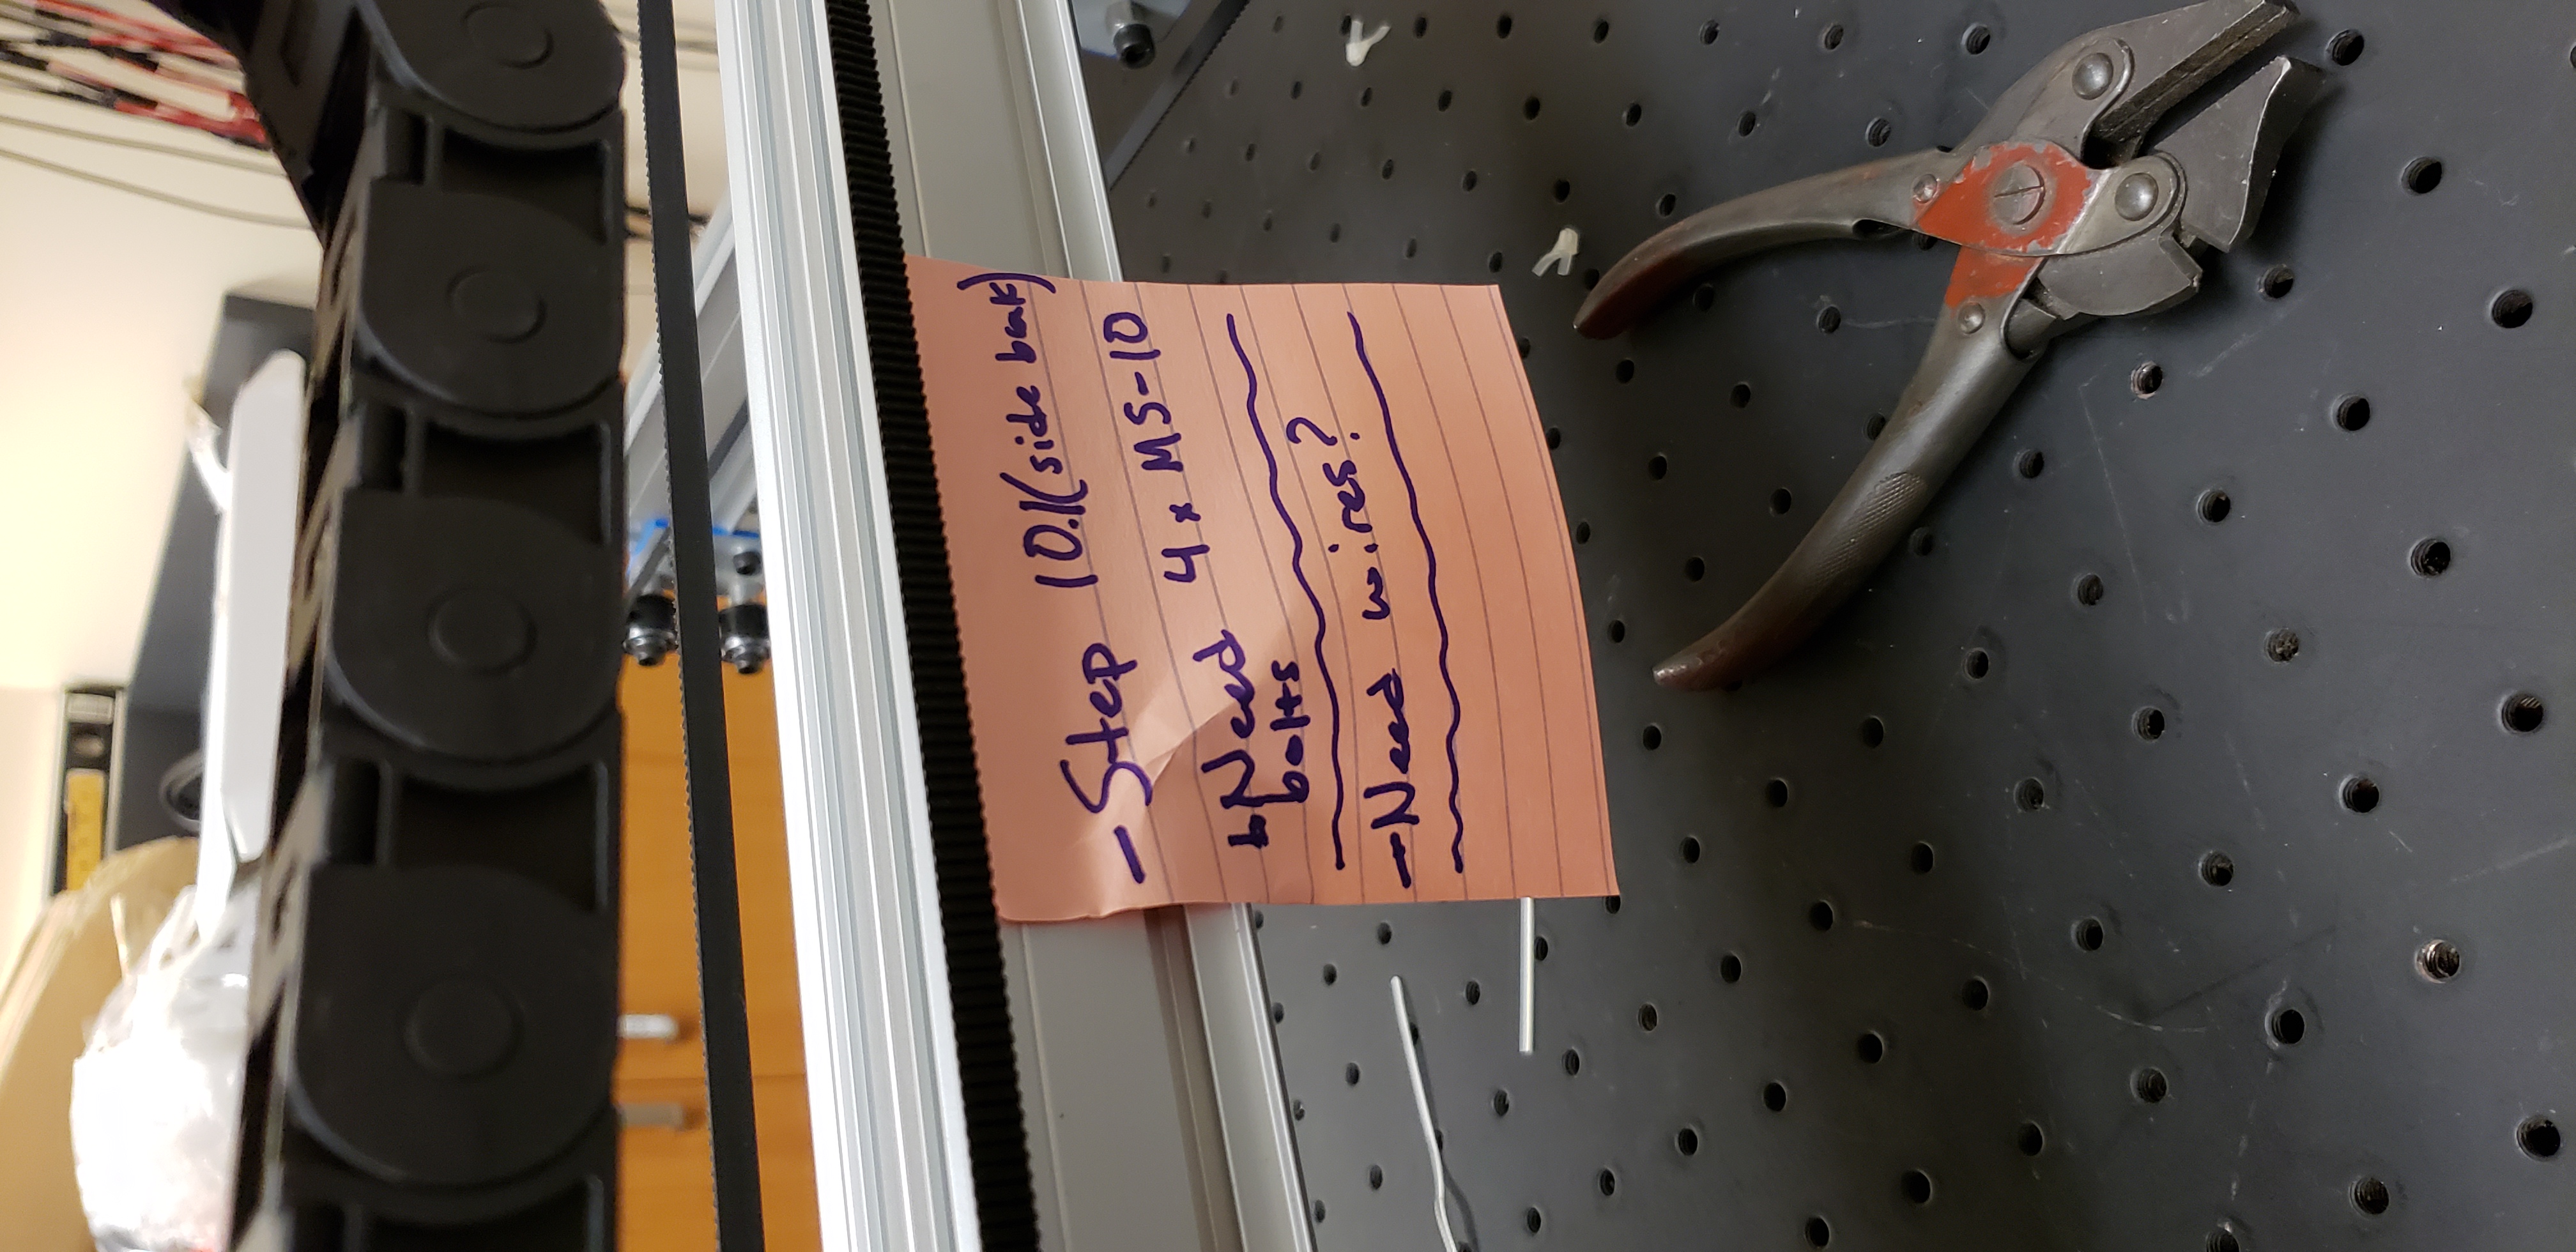 - Step 10.1 (side beak)
↳ Need 4x MS-10
bolts
- Need wires?